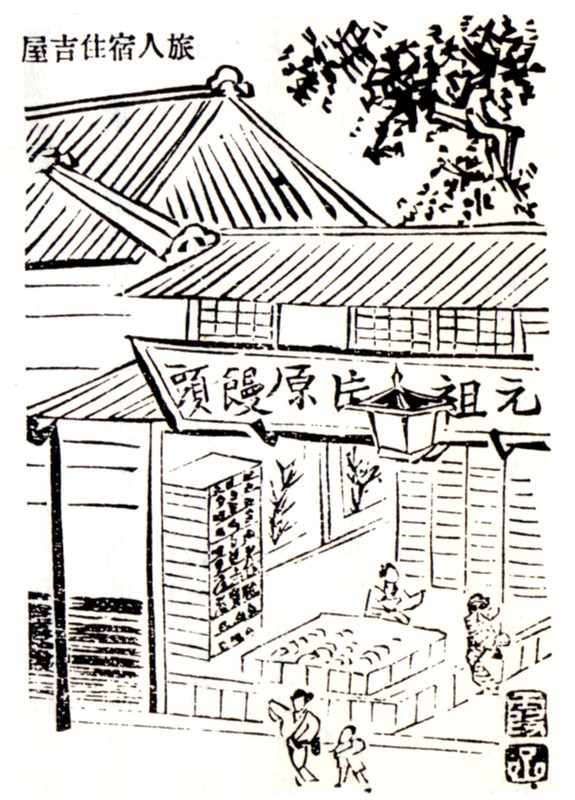 旅人宿住吉屋
元祖片原饅頭